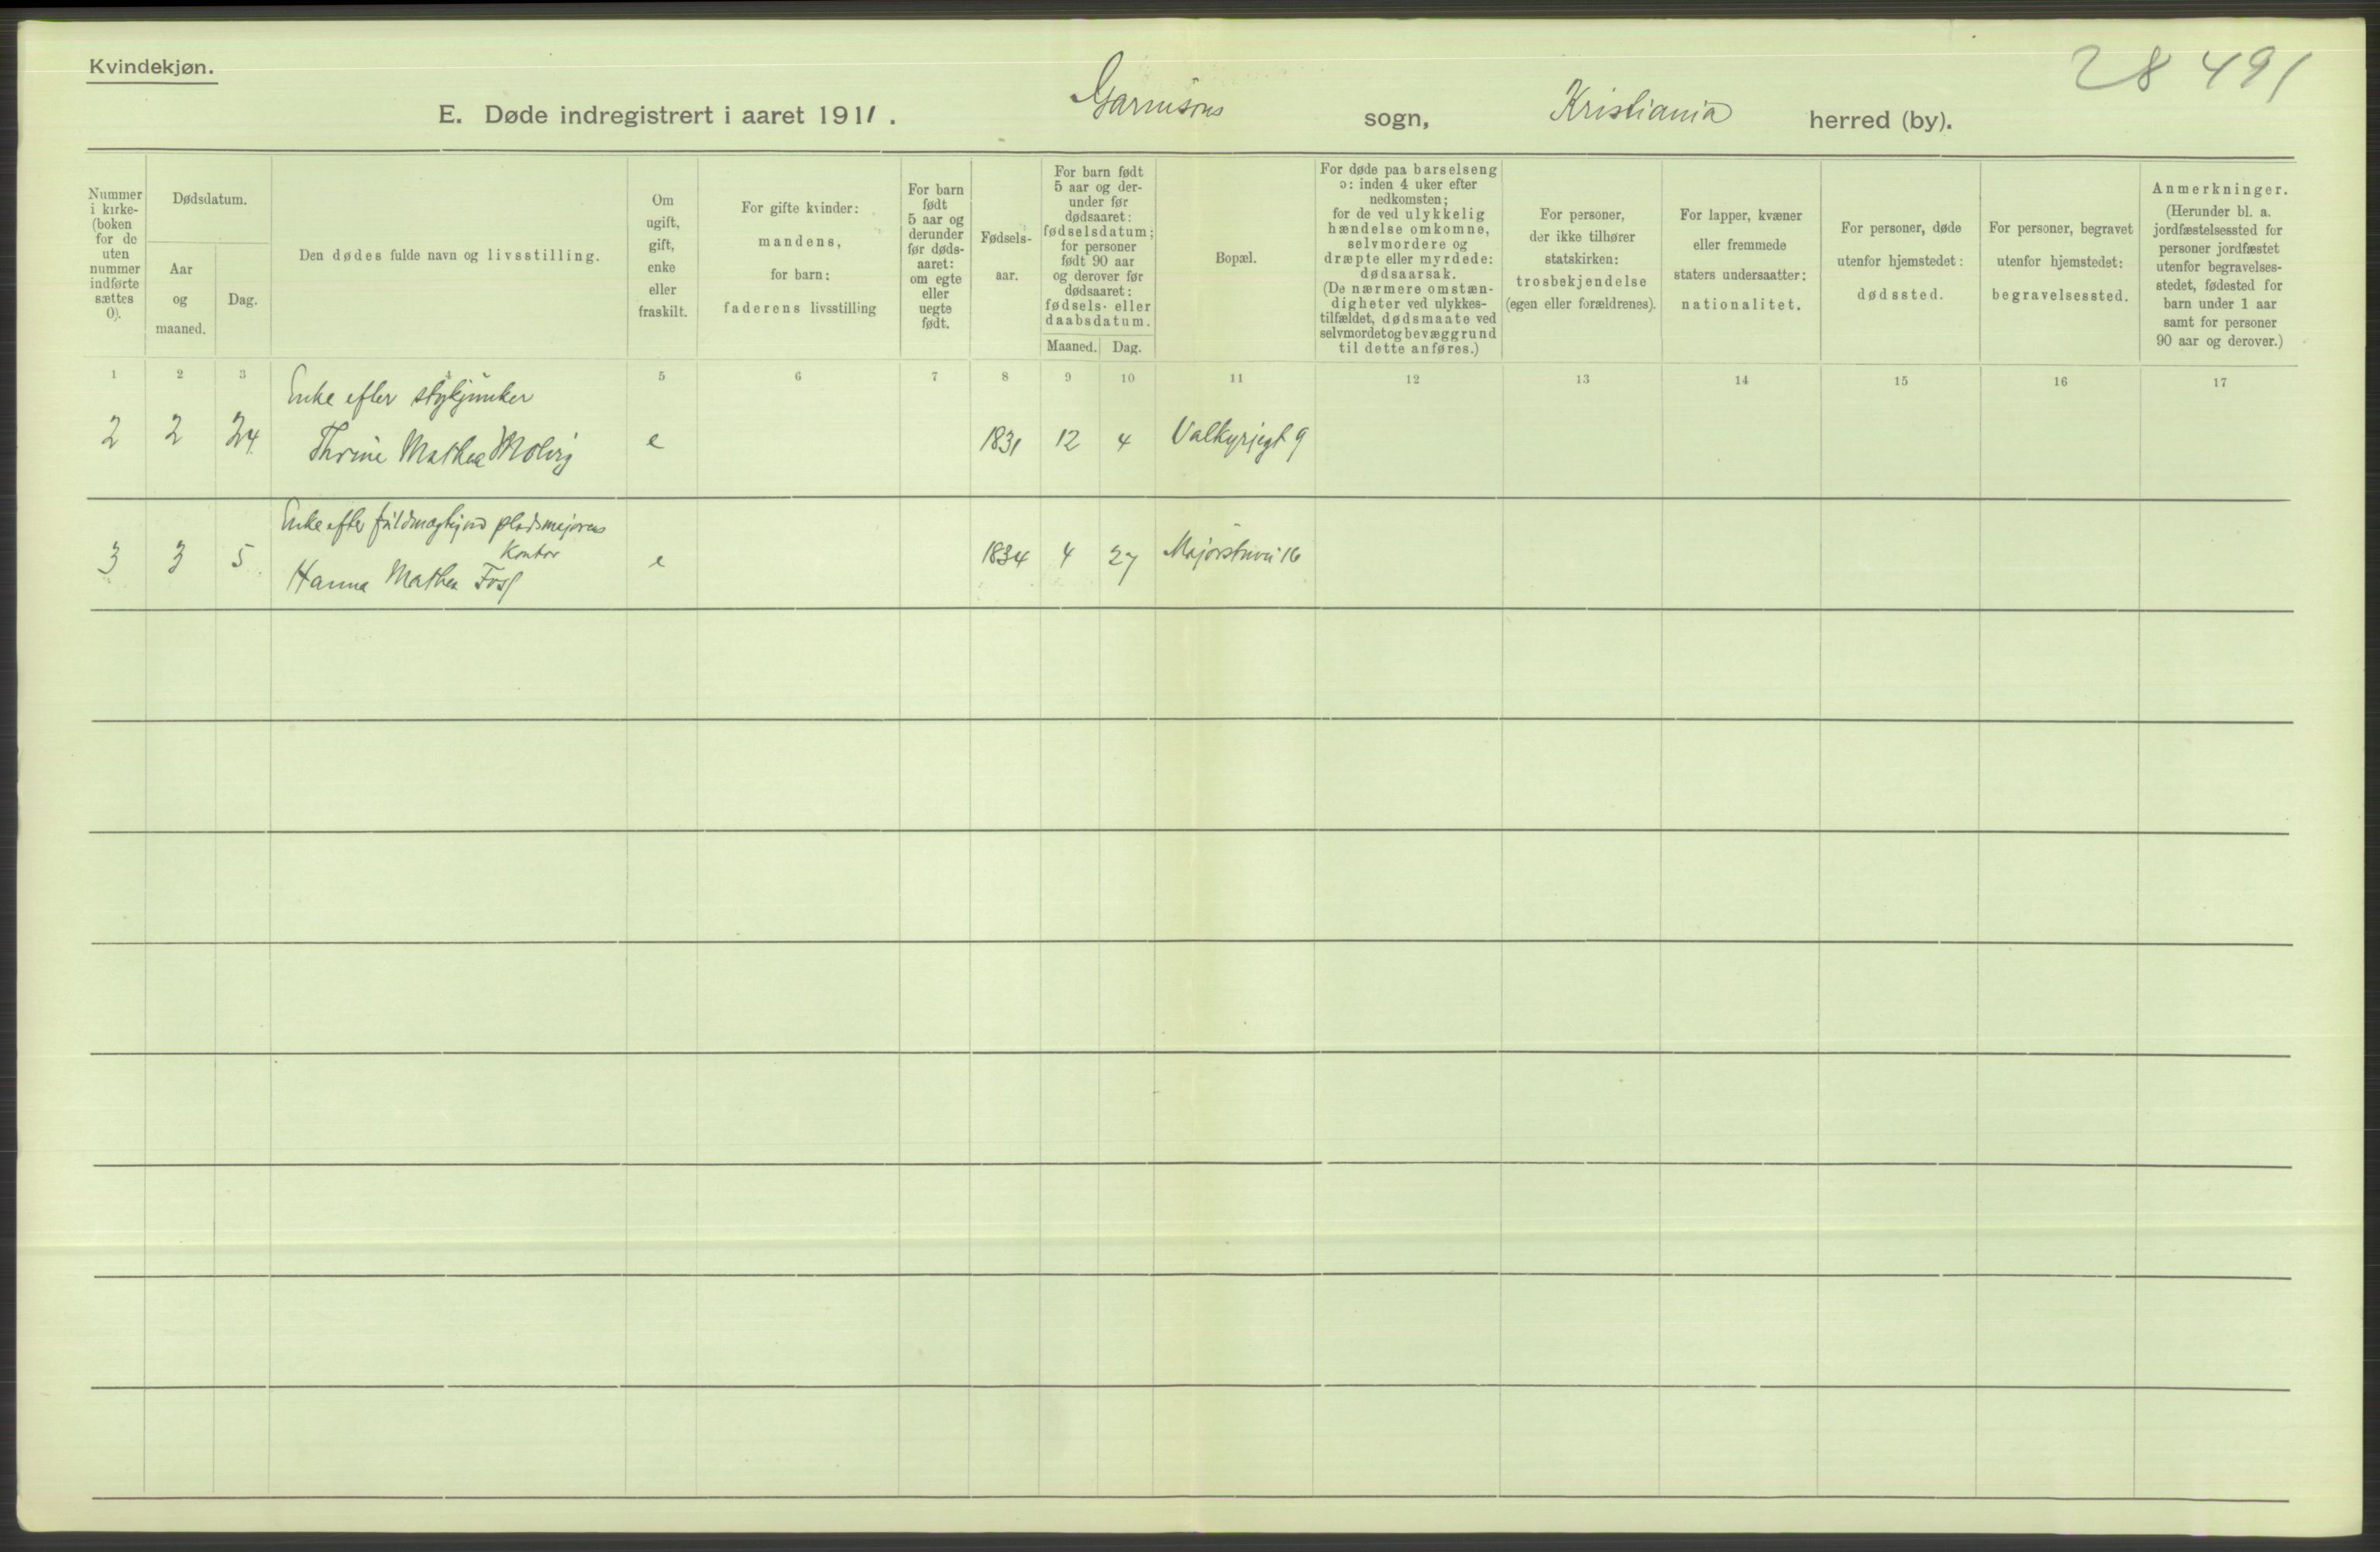 Kvindekjøn.
28 491
E. Døde indregistrert i aaret 1911. Garnisons sogn, Kristiania herred (by).
Nummer i kirke- (boken for de uten nummer indførte sættes 0).
Dødsdatum.
Aar og maaned.
Dag.
Den dødes fulde navn og livsstilling.
Om ugift, gift, enke eller fraskilt.
For gifte kvinder: mandens, for barn: faderens livsstilling
For barn født 5 aar og derunder før døds- aaret: om egte eller uegte født.
Fødsels- aar.
For barn født 5 aar og der- under før dødsaaret: fødselsdatum; for personer født 90 aar og derover før dødsaaret: fødsels- eller daabsdatum.
Maaned. Dag.
Bopæl.
For døde paa barselseng ɔ: inden 4 uker efter nedkomsten; for de ved ulykkelig hændelse omkomne, selvmordere og dræpte eller myrdede: dødsaarsak. (De nærmere omstæn- digheter ved ulykkes- tilfældet, dødsmaate ved selvmordet og bevæggrund til dette anføres.)
For personer, der ikke tilhører statskirken: trosbekjendelse (egen eller forældrenes).
For lapper, kvæner eller fremmede staters undersaatter: nationalitet.
For personer, døde utenfor hjemstedet: dødssted.
For personer, begravet utenfor hjemstedet: begravelsessted.
Anmerkninger. (Herunder bl. a. jordfæstelsessted for personer jordfæstet utenfor begravelses- stedet, fødested for barn under 1 aar samt for personer 90 aar og derover.)
1 2 3 4 5 6 7 8 9 10 11 12 13 14 15 16 17
Enke efter stykjunker
2 2 24 Thrine Mathea Molvig e 1831 12 4 Valkyrjegt 9
Enke efter fuldmægtig ved pladsmajorens
Kontor
3 3 5 Hanna Mathea Foss e 1834 4 27 Majorstuvei 16